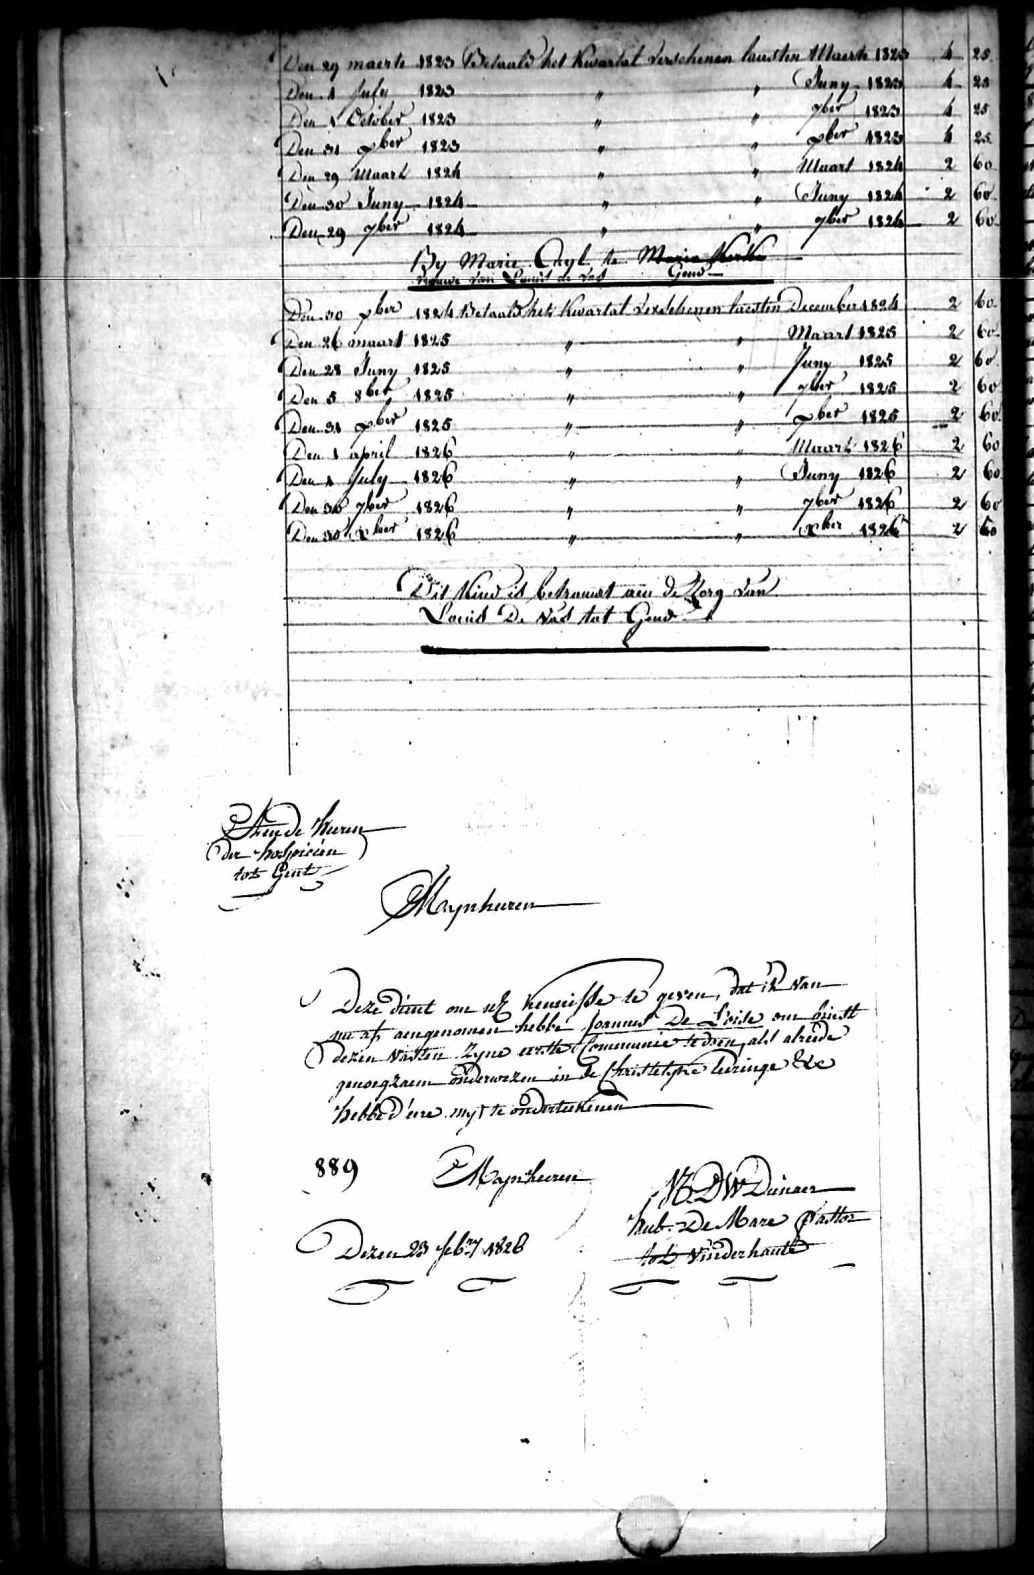 Den 29 maerte 1823 Betaald het Kwartal verschenen laesten Maerte 1823 4 25
Den 1 July 1823 " " Juny 1823 4 25
Den 1 October 1823 " " 7ber 1823 4 25
Den 31 xber 1823 " " xber 1823 4 25
Den 29 Maart 1824 " " Maart 1824 2 60
Den 30 Juny 1824 " " Juny 1824 2 60
Den 29 7ber 1824 " " 7ber 1824 2 60
By Marie te
weduwe van Louis de Vos Gend
Den 30 xber 1824 Betaald het Kwartal verschenen laesten December 1824 2 60
Den 26 maart 1825 " " Maart 1825 2 60
Den 28 Juny 1825 " " Juny 1825 2 60
Den 5 8ber 1825 " " 7ber 1825 2 60
Den 31 xber 1825 " " xber 1825 2 60
Den 1 april 1826 " " Maart 1826 2 60
Den 1 July 1826 " " Juny 1826 2 60
Den 30 7ber 1826 " " 7ber 1826 2 60
Den 30 xber 1826 " " xber 1826 2 60
Dit Kind is betrouwt aen de Zorg van
Louis De Vos tot Gend
Aen de heeren
der hospicien
tot Gent
Mynheeren
Deze dient om UE kennisse te geven, dat ik van
my af aengenomen hebbe Joannes De Loise om binst
dezen vasten zyne eerste Communie te doen, als alreede
genoegzaem onderwezen in de Christelyke leeringe &c
hebbe d'eere my te onderteekenen
889 Mynheeren
UE. DW Dienaer
Hub. De Mare Pastor
Dezen 23 febry 1826
tot Vinderhaute